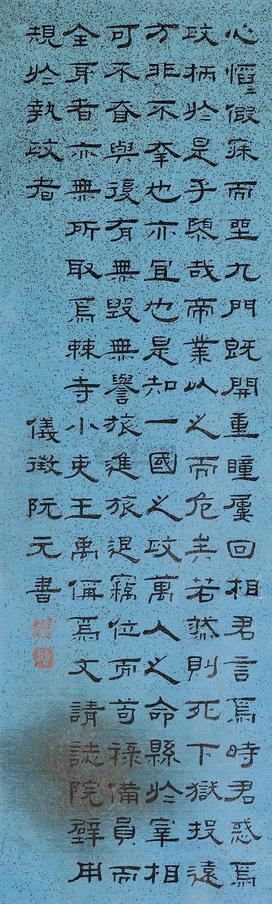 心慆〻假寐而坐九門既開重瞳屢回相君言焉時君惑焉
政柄於是乎隳哉帝業以之而危矣若然則死下獄投遠
方非不幸也亦宜也是知一國之政萬人之命縣於宰相
可不眘與復有無毀無譽旅進旅退竊位而苟祿備員而
全身者亦無所取焉棘寺小吏王禹偁為文請誌院壁用
規於執政者
儀徵阮元書